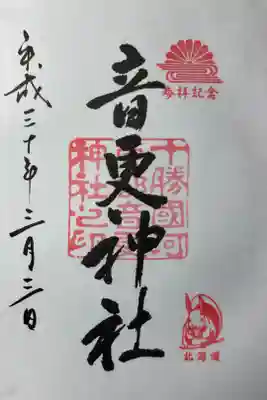 参拝記念
音更神社
十勝國河
音更
神社之印
北海道
平成三十年三月三日